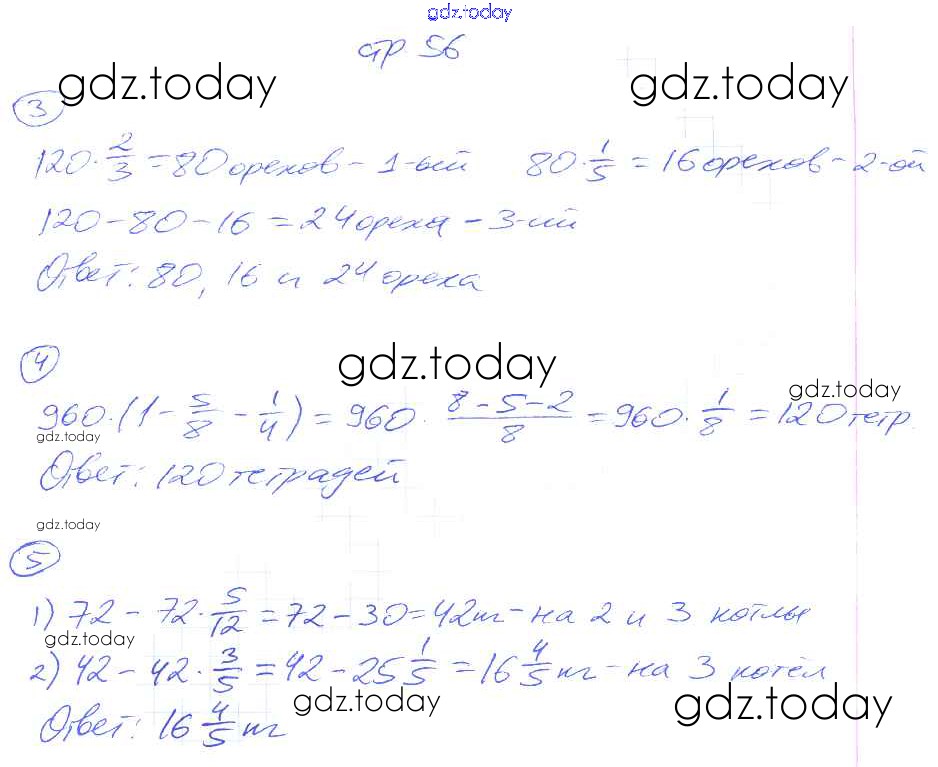 gdz.today
стр 56
gdz.today gdz.today
3
120 · 2/3 = 80 орехов - 1-ый 80 · 1/5 = 16 орехов - 2-ой
120 - 80 - 16 = 24 ореха - 3-ий
Ответ: 80, 16 и 24 ореха
4
gdz.today
gdz.today
960 · (1 - 5/8 - 1/4) = 960 · (8 - 5 - 2)/8 = 960 · 1/8 = 120 тетр.
gdz.today
Ответ: 120 тетрадей
gdz.today
5
1) 72 - 72 · 5/12 = 72 - 30 = 42 т - на 2 и 3 котлы
gdz.today
2) 42 - 42 · 3/5 = 42 - 25 1/5 = 16 4/5 т - на 3 котёл
gdz.today gdz.today
Ответ: 16 4/5 т